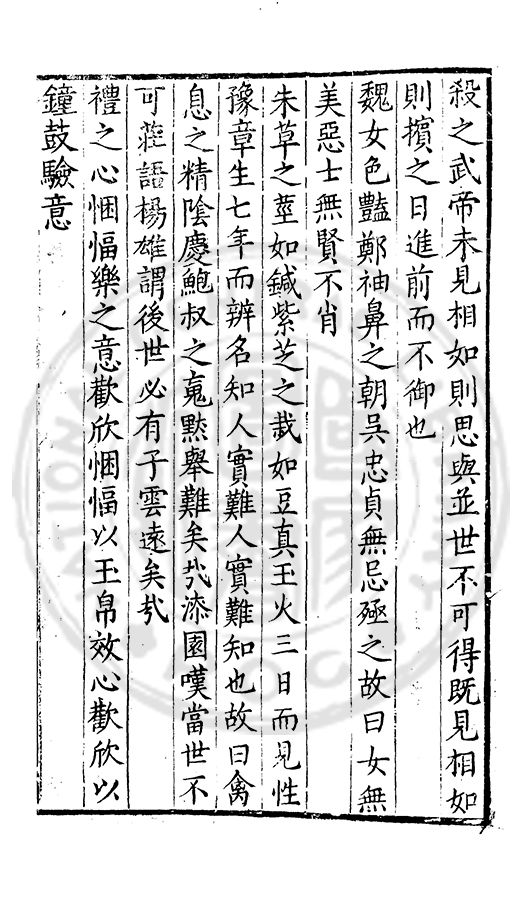 殺之武帝未見相如則思與並世不可得既見相如
則擯之日進前而不御也
魏女色豔鄭袖鼻之朝吳忠貞無忌殛之故曰女無
美惡士無賢不肖
朱草之莖如鍼紫芝之栽如豆真玉火三日而見性
豫章生七年而辨名知人實難人實難知也故曰禽
息之精陰慶鮑叔之䰟黙舉難矣㢤漆園嘆當世不
可莊語楊雄謂後世必有子雲遠矣㢤
禮之心悃愊樂之意歡欣悃愊以玉帛效心歡欣以
鐘鼓驗意